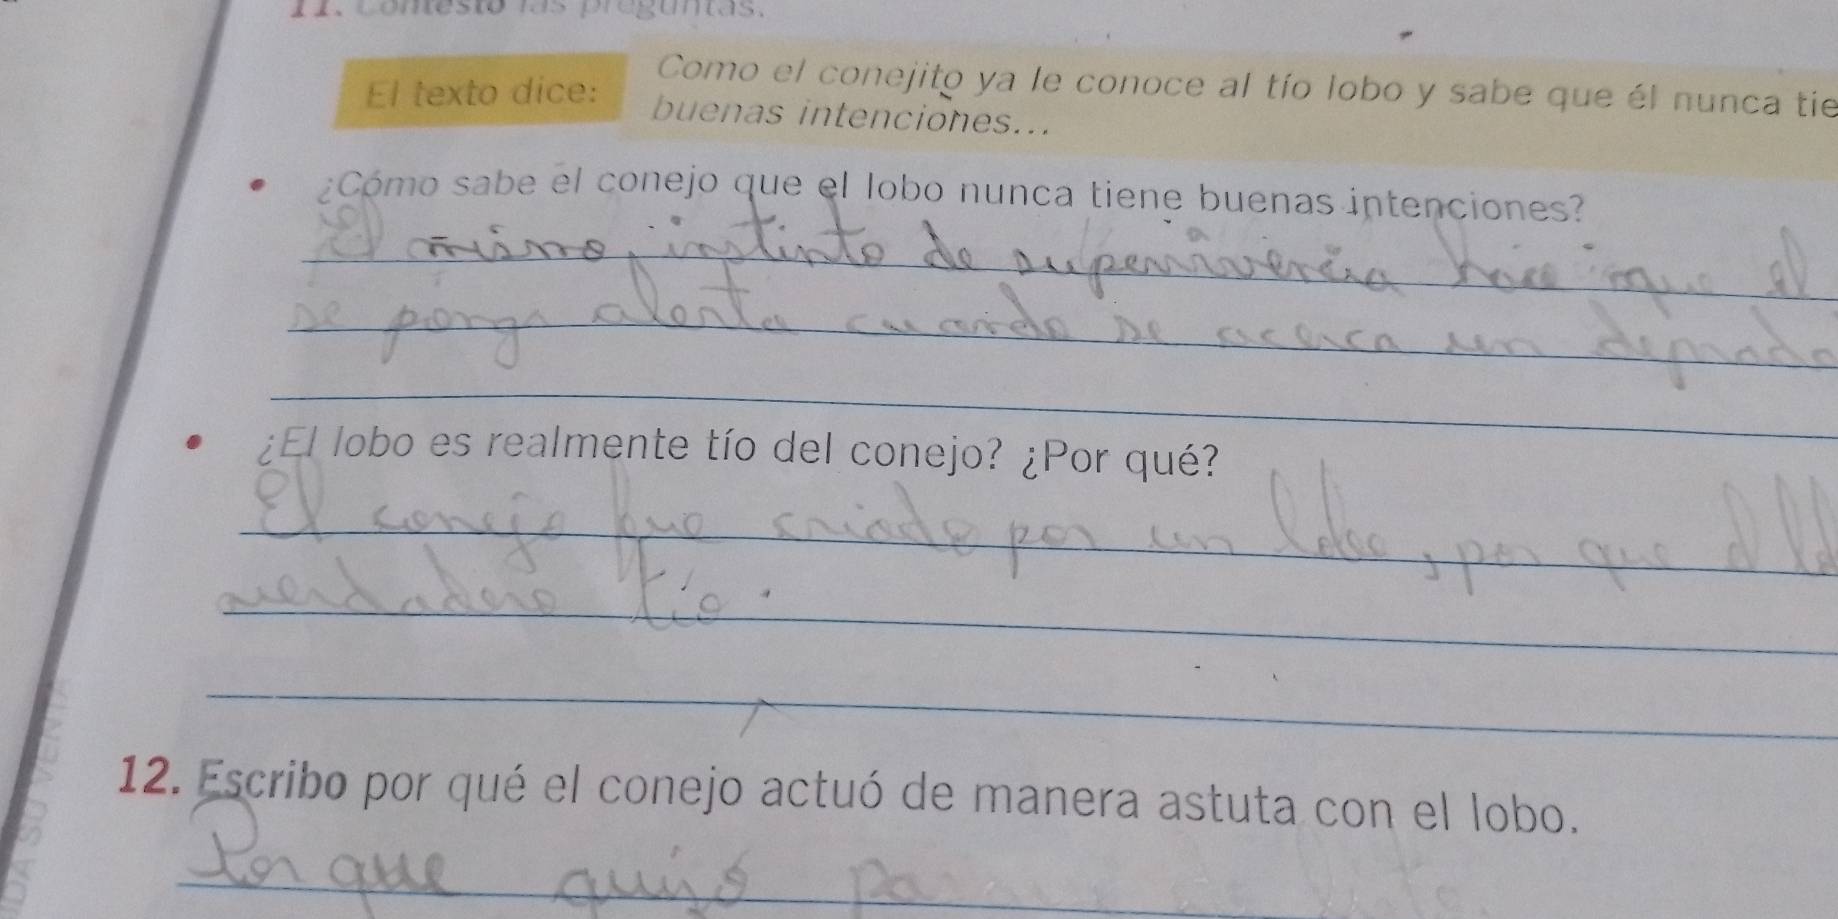 11. Contesto las preguntas.
El texto dice:
Como el conejito ya le conoce al tío lobo y sabe que él nunca tie
buenas intenciones...
• ¿Cómo sabe el conejo que el lobo nunca tiene buenas intenciones?
El mismo instinto de supervivencia hace que el
se ponga alerta cuando se acerca un depredado
• ¿El lobo es realmente tío del conejo? ¿Por qué?
El conejo fue criado por un lobo, por que
verdadero tío.
12. Escribo por qué el conejo actuó de manera astuta con el lobo.
Por que quiso